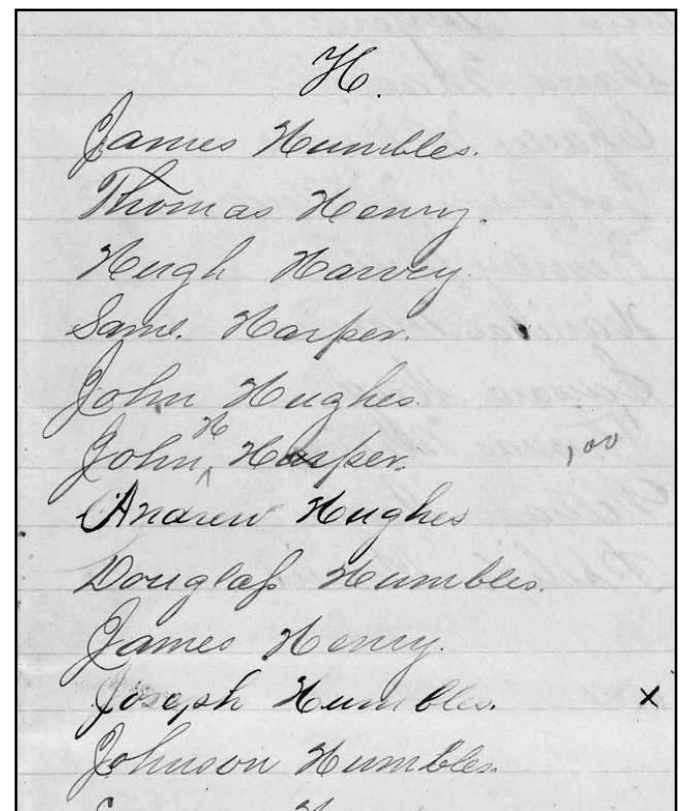 H.
James Humbles.
Thomas Henry.
Hugh Harvey.
Saml. Harper.
John Hughes.
John H Harper. 1,00
Andrew Hughes
Douglaſs Humbles.
James Henry.
Joseph Humbles. x
Johnson Humbles.